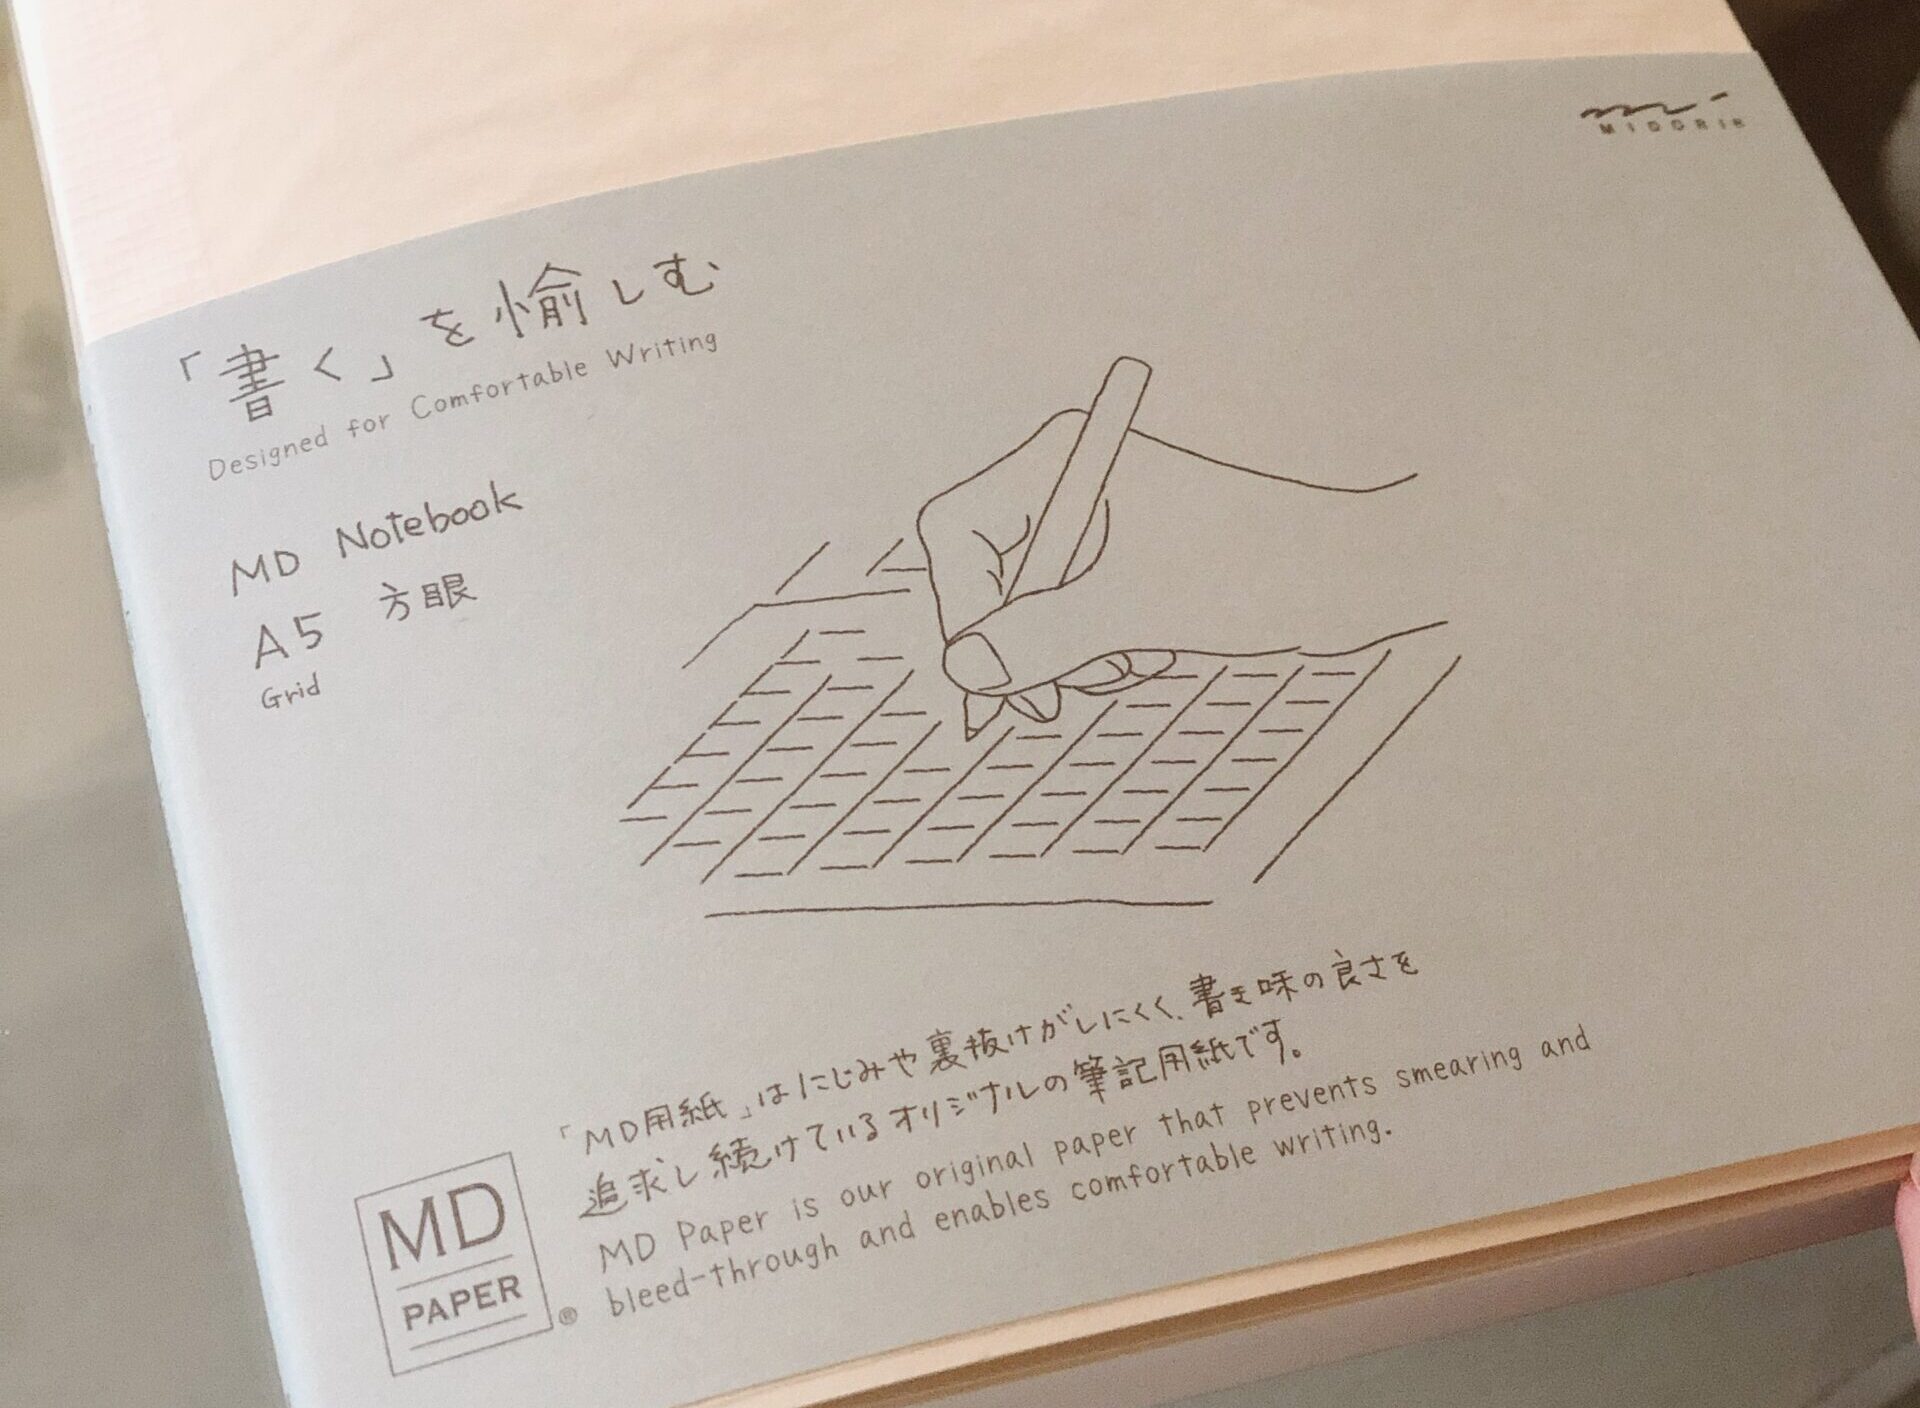 MIDORI®
「書く」を愉しむ
Designed for Comfortable Writing
MD Notebook
A5 方眼
Grid
「MD用紙」はにじみや裏抜けがしにくく、書き味の良さを
追求し続けているオリジナルの筆記用紙です。
MD Paper is our original paper that prevents smearing and
bleed-through and enables comfortable writing.
MD
PAPER®